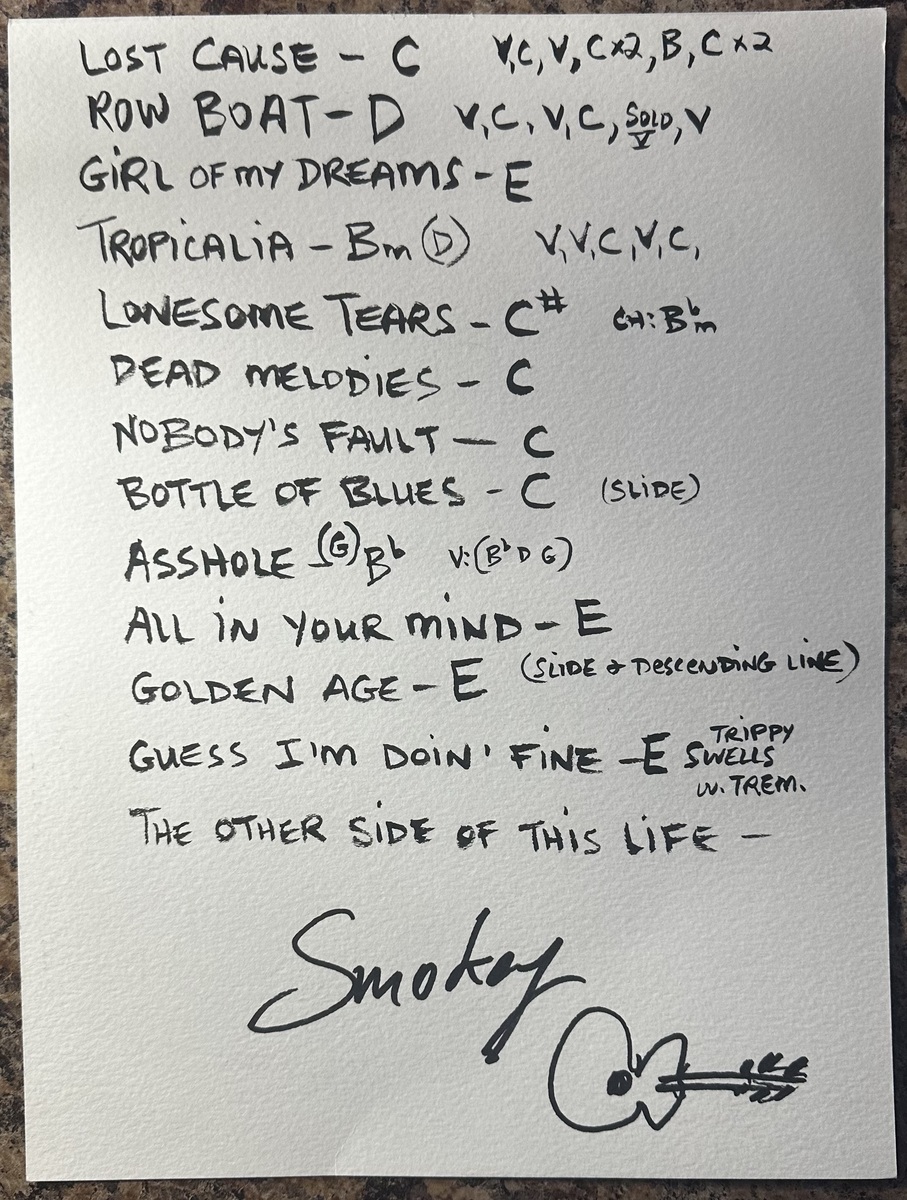 LOST CAUSE - C V,C,V,Cx2,B,Cx2
ROW BOAT - D V,C,V,C,SOLO,V
V
GIRL OF MY DREAMS - E
TROPICALIA - Bm (D) V,V,C,V,C,
LONESOME TEARS - C# CH: B♭m
DEAD MELODIES - C
NOBODY'S FAULT — C
BOTTLE OF BLUES - C (SLIDE)
ASSHOLE - (G) B♭ V: (B♭ D G)
ALL IN YOUR MIND - E
GOLDEN AGE - E (SLIDE & DESCENDING LINE)
GUESS I'M DOIN' FINE - E TRIPPY
SWELLS
W. TREM.
THE OTHER SIDE OF THIS LIFE —
Smokey